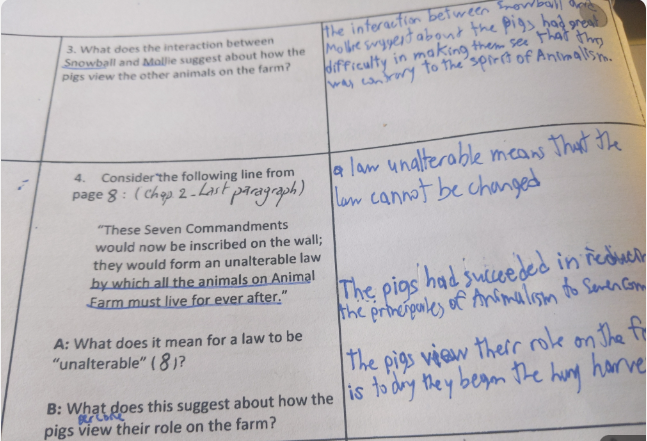 3. What does the interaction between
Snowball and Mollie suggest about how the
pigs view the other animals on the farm?
the interaction between Snowball and
Mollie suggest about the pigs had great
difficulty in making them see that this
was contrary to the spirit of Animalism.
4. Consider the following line from
page 8 : (Chap 2 - Last paragraph)
"These Seven Commandments
would now be inscribed on the wall;
they would form an unalterable law
by which all the animals on Animal
Farm must live for ever after."
A: What does it mean for a law to be
"unalterable" (8)?
B: What does this suggest about how the
perceive
pigs view their role on the farm?
a law unalterable means that the
law cannot be changed
The pigs had succeeded in
the of Animalism to Seven Com
The pigs view their role on the
is to day they began the harve